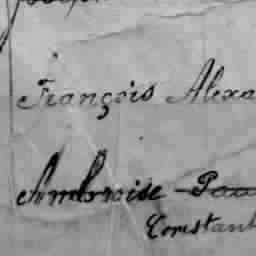 François Alexa
Ambroise
Constant